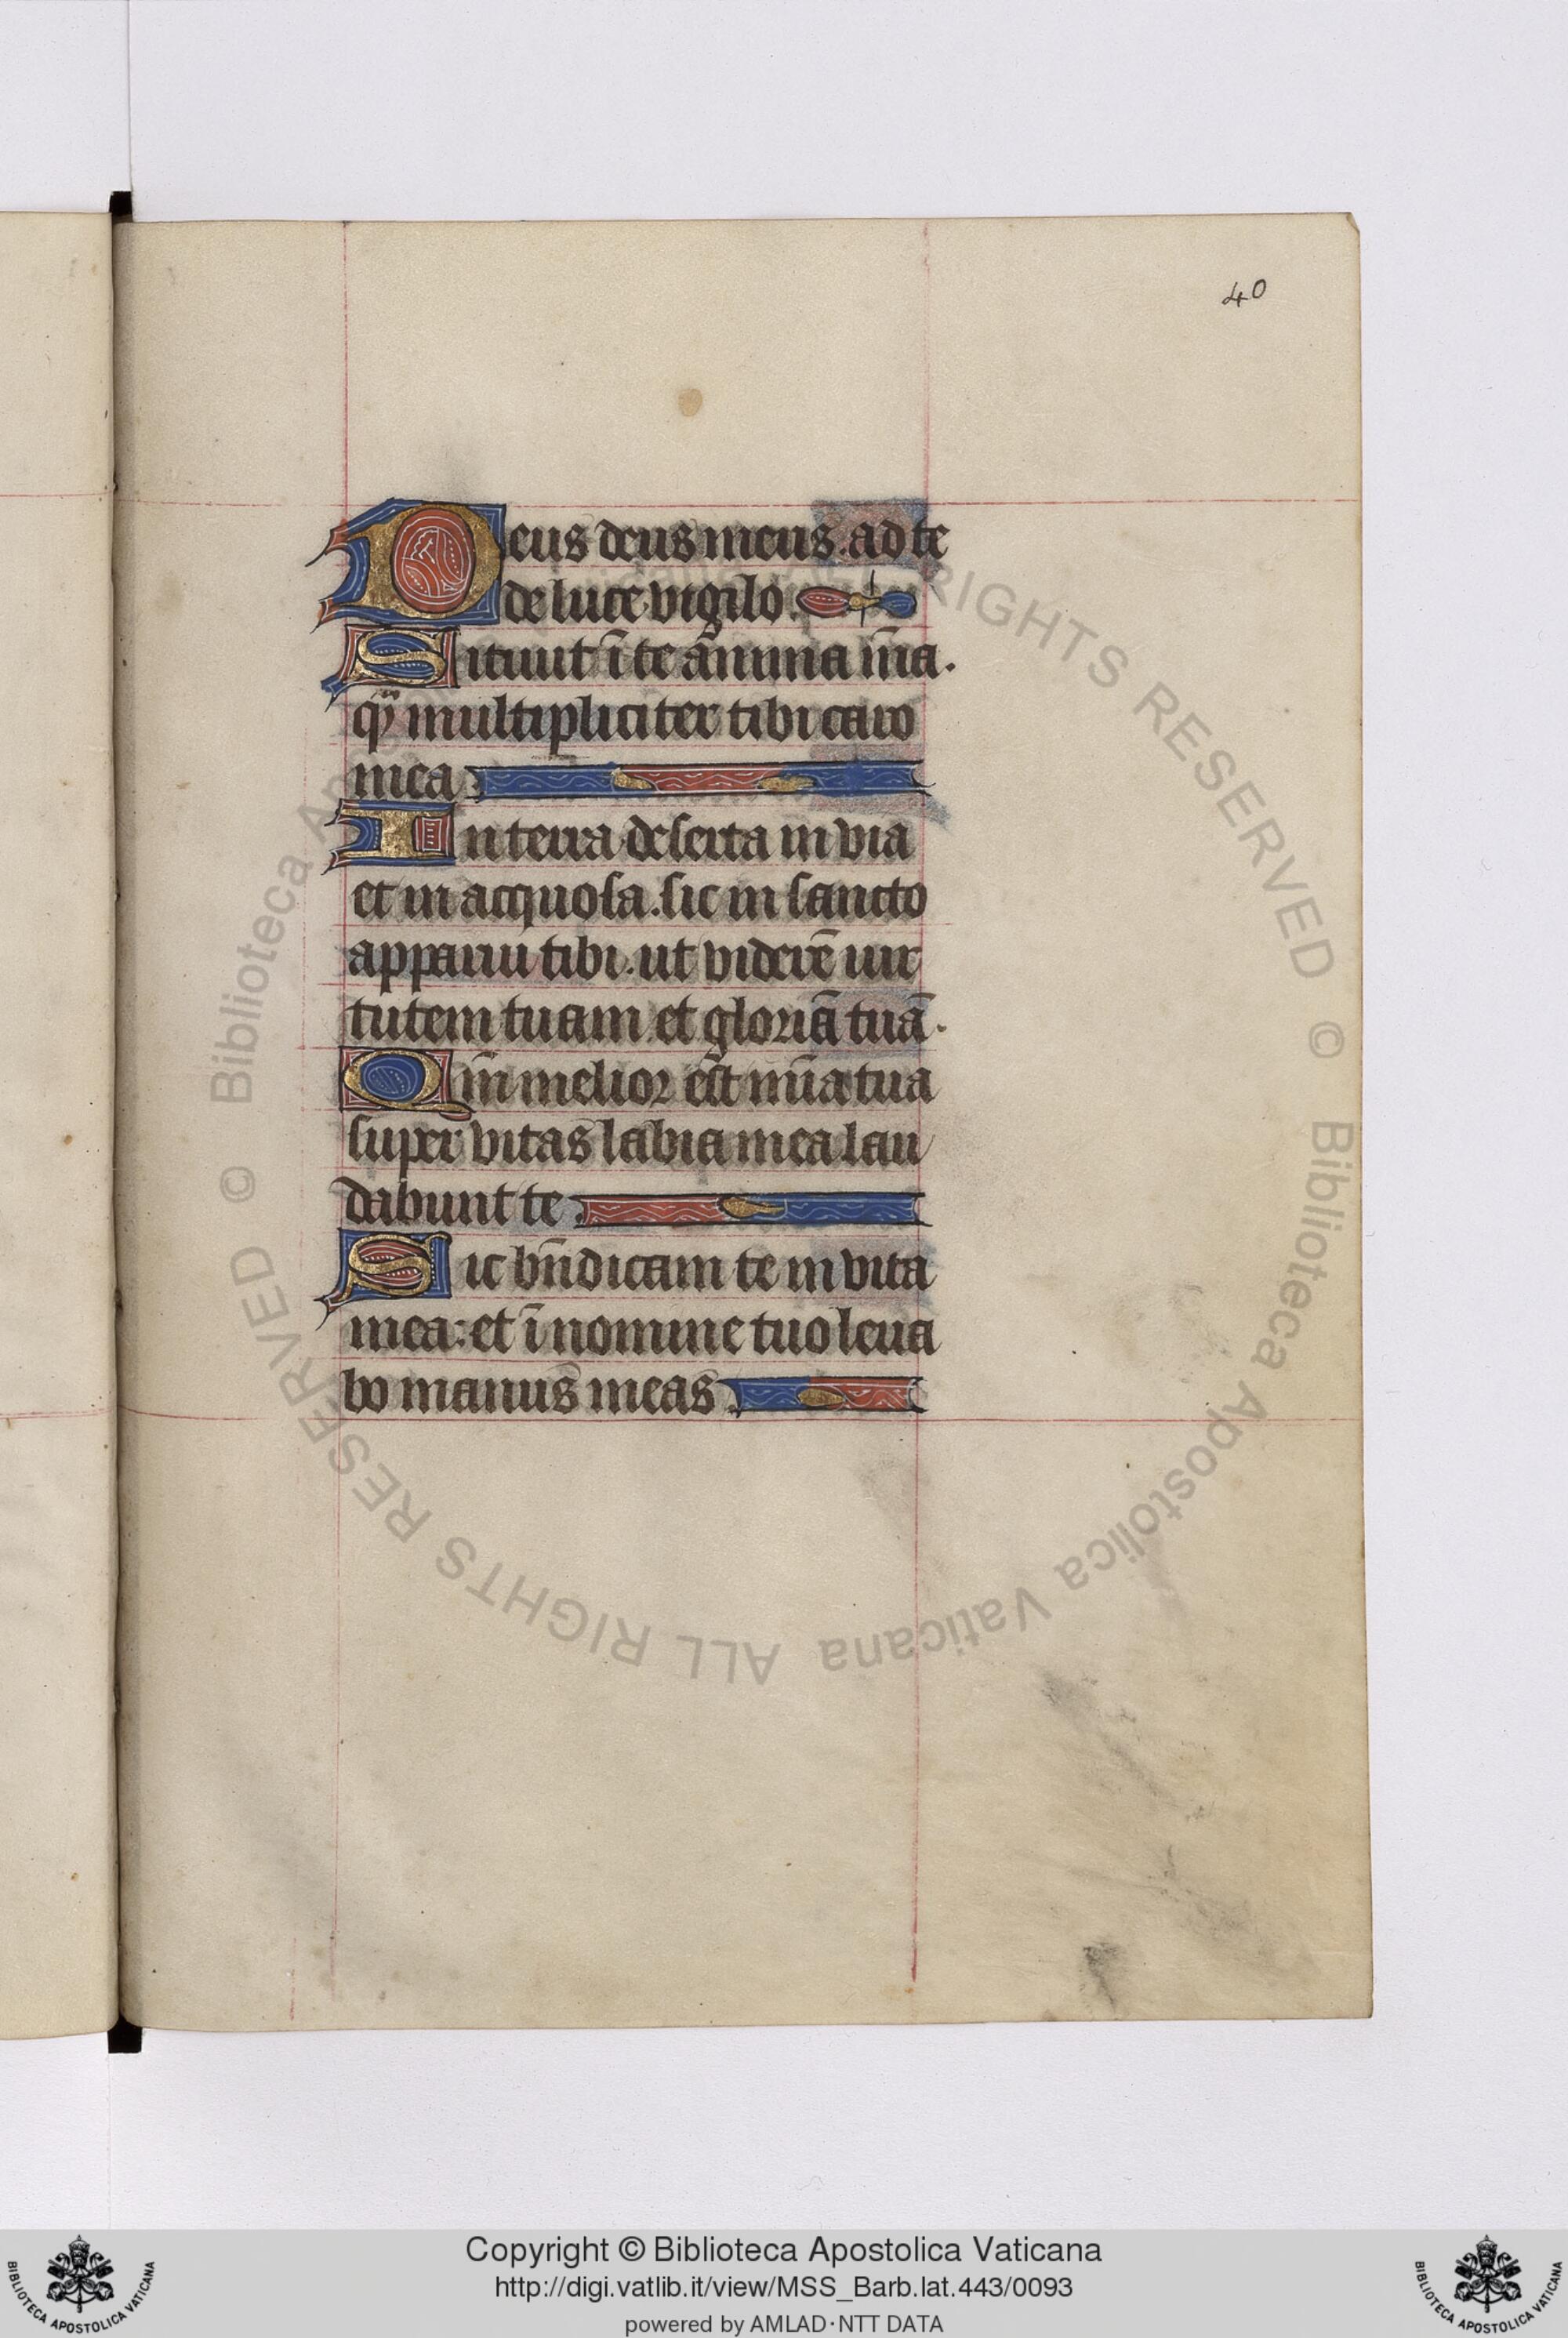 40
Deus deus meus. ad te
de luce vigilo.
Sitiuit ī te anima m̄a.
q̄ multipliciter tibi caro
mea
In terra deserta in via
et in acquosa. sic in sancto
apparui tibi. ut viderē uir
tutem tuam et gloriā tuā.
Qm̄ melior est mīa tua
super vitas labia mea lau
dabunt te.
Sic bn̄dicam te in vita
mea: et ī nomine tuo leua
bo manus meas.
© Biblioteca Apostolica Vaticana ALL RIGHTS RESERVED © Biblioteca Apostolica Vaticana ALL RIGHTS RESERVED
Copyright © Biblioteca Apostolica Vaticana
http://digi.vatlib.it/view/MSS_Barb.lat.443/0093
powered by AMLAD·NTT DATA
BIBLIOTECA APOSTOLICA VATICANA
BIBLIOTECA APOSTOLICA VATICANA